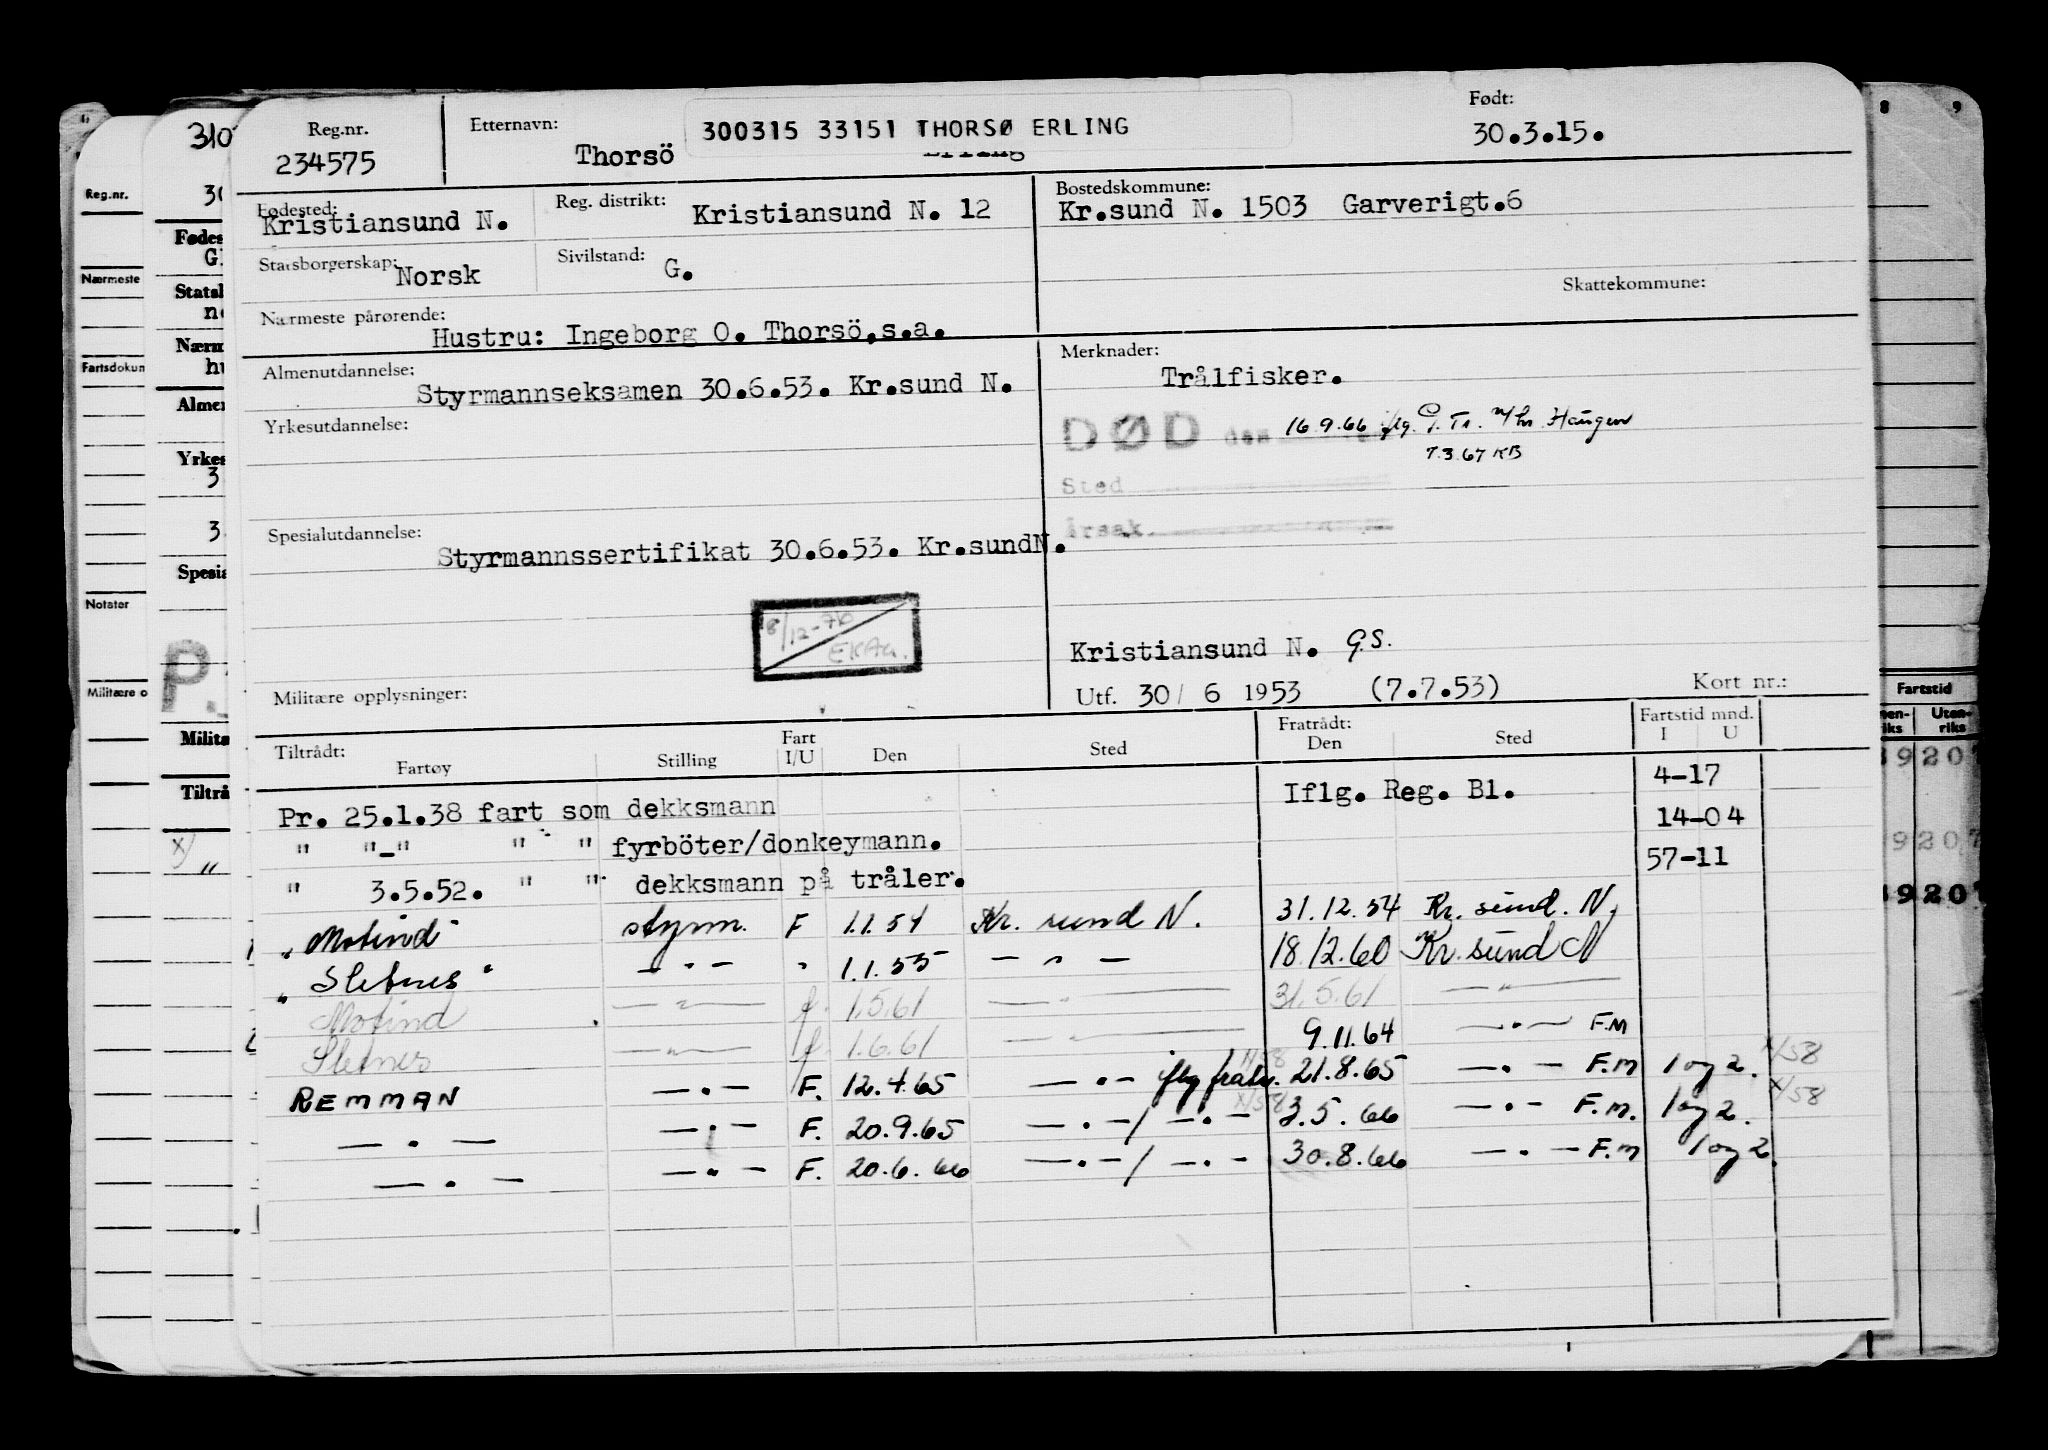 Reg.nr.
234575
Etternavn:
Thorsö
300315 33151 THORSØ ERLING
Født:
30.3.15.
Fødested:
Kristiansund N.
Reg. distrikt:
Kristiansund N. 12
Bostedskommune:
Kr.sund N. 1503 Garverigt.6
Statsborgerskap:
Norsk
Sivilstand:
G.
Skattekommune:
Nærmeste pårørende:
Hustru: Ingeborg O. Thorsö,s.a.
Almenutdannelse:
Styrmannseksamen 30.6.53. Kr.sund N.
Merknader:
Trålfisker.
Yrkesutdannelse:
DØD den 16.9.66 iflg. Haugen
7.3.67 KB
Sted
Årsak
Spesialutdannelse:
Styrmannssertifikat 30.6.53. Kr.sundN.
8/12-70
EKAa.
Kristiansund N. G.S.
Militære opplysninger:
Utf. 30/ 6 1953 (7.7.53)
Kort nr.:
Tiltrådt:
Fartøy Stilling Fart I/U Den Sted Fratrådt: Den Sted Fartstid mnd. I U
Pr. 25.1.38 fart som dekksmann Iflg. Reg. Bl. 4-17
" "-" " " fyrböter/donkeymann. 14-04
" 3.5.52. " " dekksmann på tråler. 57-11
"Motind" styrm. F 1.1.54 Kr. sund N. 31.12.54 Kr. sund. N.
"Sletnes" -"- " 1.1.55 - " - 18.12.60 Kr. sund N
Motind -"- f. 1.5.61 -"- 31.5.61 -"-
Sletnes -"- f. 1.6.61 -"- 9.11.64 -"- F.M
REMMAN -"- F. 12.4.65 -"- iflg fratr. 21.8.65 -"- F.M 1 og 2. X/58
-"- -"- F. 20.9.65 -"-/-"- 3.5.66 -"- F.M. 1 og 2. X/58
-"- -"- F. 20.6.66 -"-/-"- 30.8.66 -"- F.M 1 og 2.
Reg.nr.
Nærmeste
Fartsdokum
Notater
Militære o
310
30
Fødes
G
Statsl
n
Nærm
hu
Almer
Yrkes
3
3
Spesia
P.
Milita
Tiltrå
8 9
Fartstid
Uten-
riks